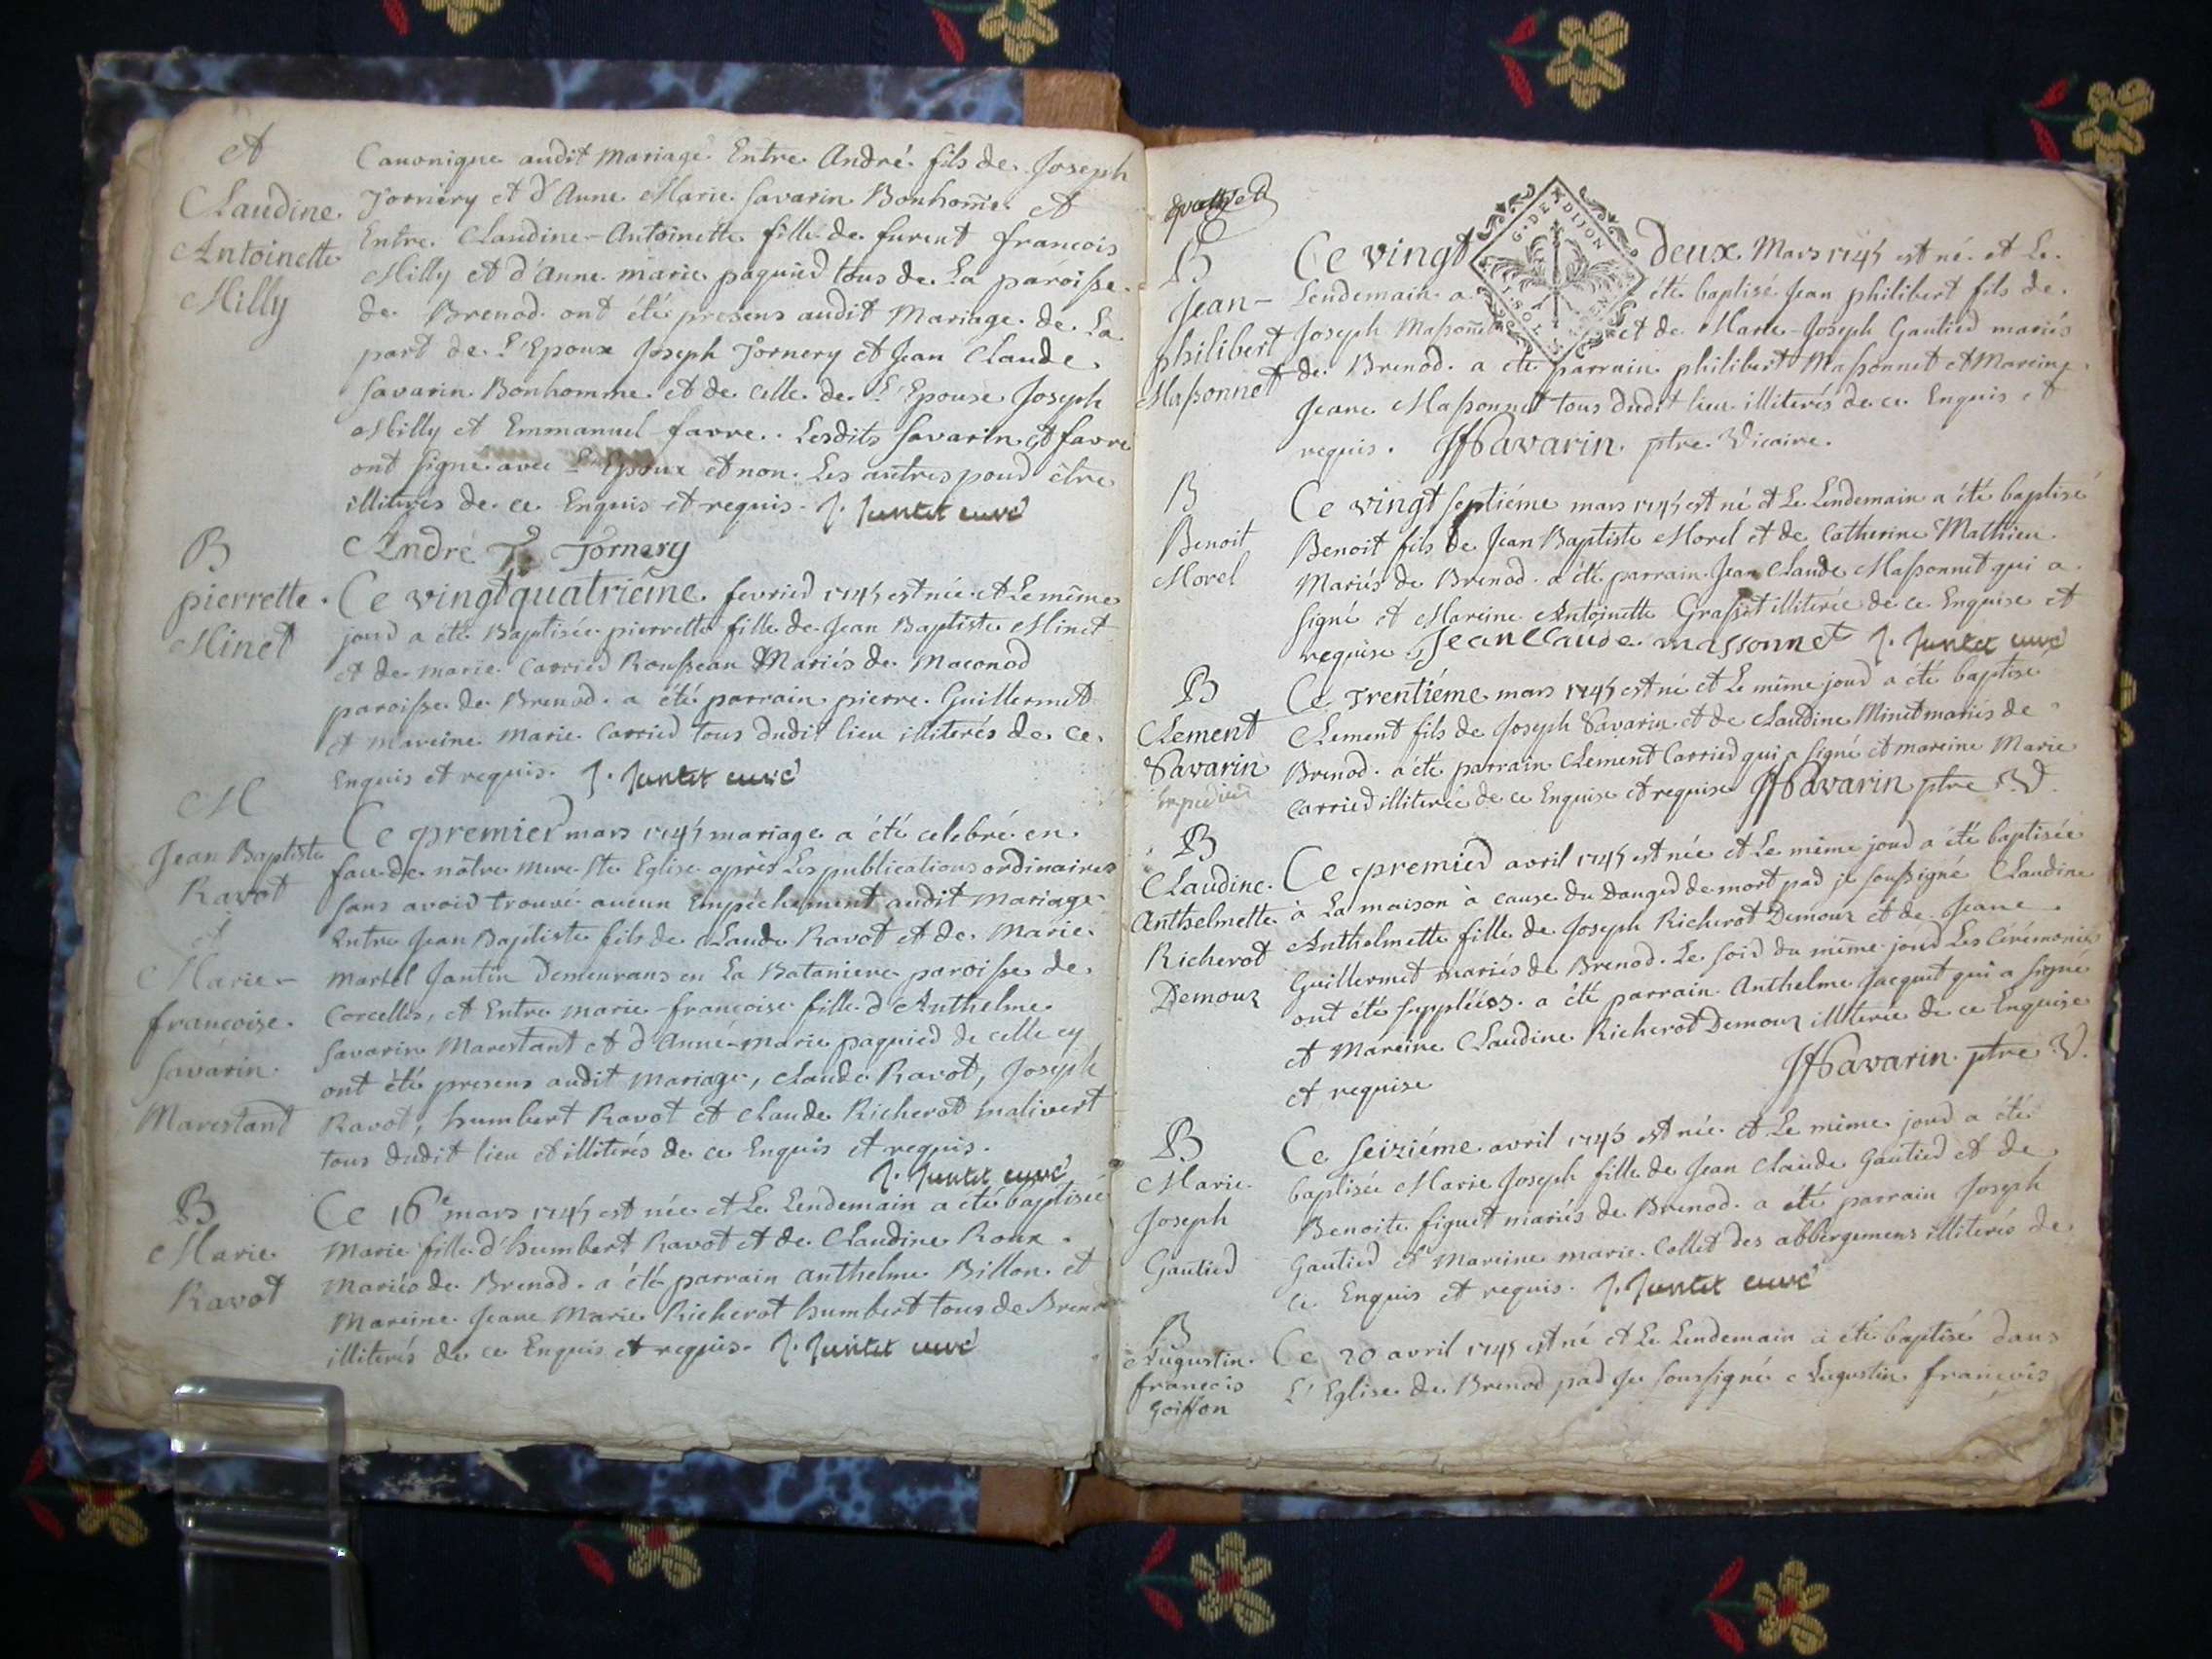 et
Claudine
Antoinette
Milly
Canonique audit Mariage Entre André fils de Joseph
Tornery et d'Anne Marie Savarin Bonhom̃e et
Entre Claudine-Antoinette fille de furent françois
Milly et d'Anne marie paquier tous de La paroisse
de Brenod ont été presens audit Mariage de La
part de L'Epoux Joseph Tornery et Jean Claude
Savarin Bonhomme et de celle de L'Epouse Joseph
Milly et Emmanuel favre. Lesdits Savarin et favre
ont signe avec L'Epoux et non Les autres pour être
illiterés de ce Enquis et requis. J. Juntet curé
André T. Tornery
B
pierrette
Minet
Ce vingtquatriême fevrier 1745 est née et Le même
jour a été Baptisée pierrette fille de Jean Baptiste Minet
et de marie Carrier Rousseau Mariés de Maconod
paroisse de Brenod. a été parrain pierre Guillermet
et mareine Marie Carrier tous dudit lieu illiterés de ce
Enquis et requis. J. Juntet curé
M
Jean Baptiste
Ravot
et
Marie-
françoise
Savarin
Marestant
Ce premier mars 1745 mariage a été celebré en
face de nôtre mere Ste Eglise après Les publications ordinaires
sans avoir trouvé aucun Empéchement audit mariage
Entre Jean Baptiste fils de Claude Ravot et de Marie
Martel Jantin Demeurans en La Bataniere paroisse de
Corcelles, et Entre marie-françoise fille d'Anthelme
Savarin Marestant et d'Anne-marie paquier de celle cy
ont été presens audit mariage, Claude Ravot, Joseph
Ravot, humbert Ravot et Claude Richerot malivert
tous dudit lieu et illiterés de ce Enquis et requis.
J. Juntet curé
B
Marie
Ravot
Ce 16e mars 1745 est née et Le Lendemain a été baptisée
Marie fille d'humbert Ravot et de Claudine Roux
Mariés de Brenod. a été parrain anthelme Billon et
Mareine Jeane Marie Richerot humbert tous de Brenod
illiterés de ce Enquis et requis. J. Juntet curé
G. DE DIJON
B
Jean-
philibert
Massonnet
Ce vingt deux Mars 1745 est né et Le
Lendemain a été baptisé Jean philibert fils de
Joseph Massonnet et de Marie-Joseph Gautier mariés
de Brenod. a été parrain philibert Massonnet et Mareine
Jeane Massonnet tous dudit lieu illiterés de ce Enquis et
requis. Savarin ptre Vicaire.
B
Benoit
Morel
Ce vingt septiéme mars 1745 est né et Le Lendemain a été baptisé
Benoit fils de Jean Baptiste Morel et de Catherine Mathieu
Mariés de Brenod. a été parrain Jean Claude Massonnet qui a
signé et Mareine Antoinette Grasset illiterée de ce Enquise et
requise Jean Claude massonnet J. Juntet curé
B
Clement
Savarin
Ce Trentiéme mars 1745 est né et Le même jour a été baptisé
Clement fils de Joseph Savarin et de Claudine Minet mariés de
Brenod. a été parrain Clement Carrier qui a signé et mareine Marie
Carrier illiterée de ce Enquise et requise Savarin ptre V.
B
Claudine
Anthelmette
Richerot
Demour
Ce premier avril 1745 est née et Le même jour a été baptisée
à La maison à cause du Danger de mort par je soussigné Claudine
Anthelmette fille de Joseph Richerot Demour et de Jeane
Guillermet mariés de Brenod. Le soir du même jour Les Cérémonies
ont été suppléées. a été parrain Anthelme Jacquet qui a signé
et Mareine Claudine Richerot Demour illiterée de ce Enquise
et requise Savarin ptre V.
B
Marie
Joseph
Gautier
Ce seiziéme avril 1745 est née et Le même jour a été
baptisée Marie Joseph fille de Jean Claude Gautier et de
Benoite figuet mariés de Brenod. a été parrain Joseph
Gautier et Mareine marie Collet des abbergemens illiterés de
ce Enquis et requis. J. Juntet curé
B
Augustin
françois
Goiffon
Ce 20 avril 1745 est né et Le Lendemain a été baptisé dans
L'Eglise de Brenod par je soussigné Augustin françois